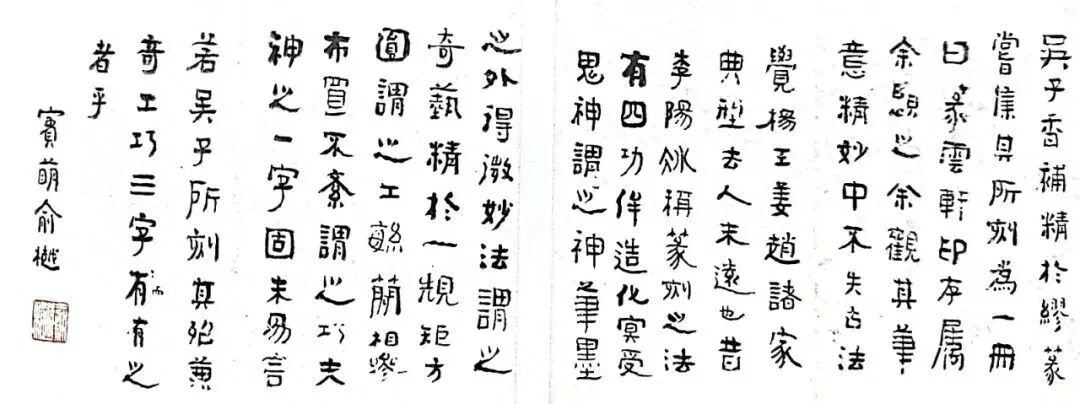 吳子香補精於繆篆
嘗集其所刻為一冊
曰篆雲軒印存屬
余題之余觀其筆
意精妙中不失古法
覺楊王姜趙諸家
典型去人未遠也昔
李陽冰稱篆刻之法
有四功侔造化冥受
鬼神謂之神筆墨
之外得微妙法謂之
奇藝精於一規矩方
圓謂之工緐簡相參
布置不紊謂之巧夫
神之一字固未易言
若吳子所刻其殆兼
奇工巧三字而有之
者乎
賓萌俞樾